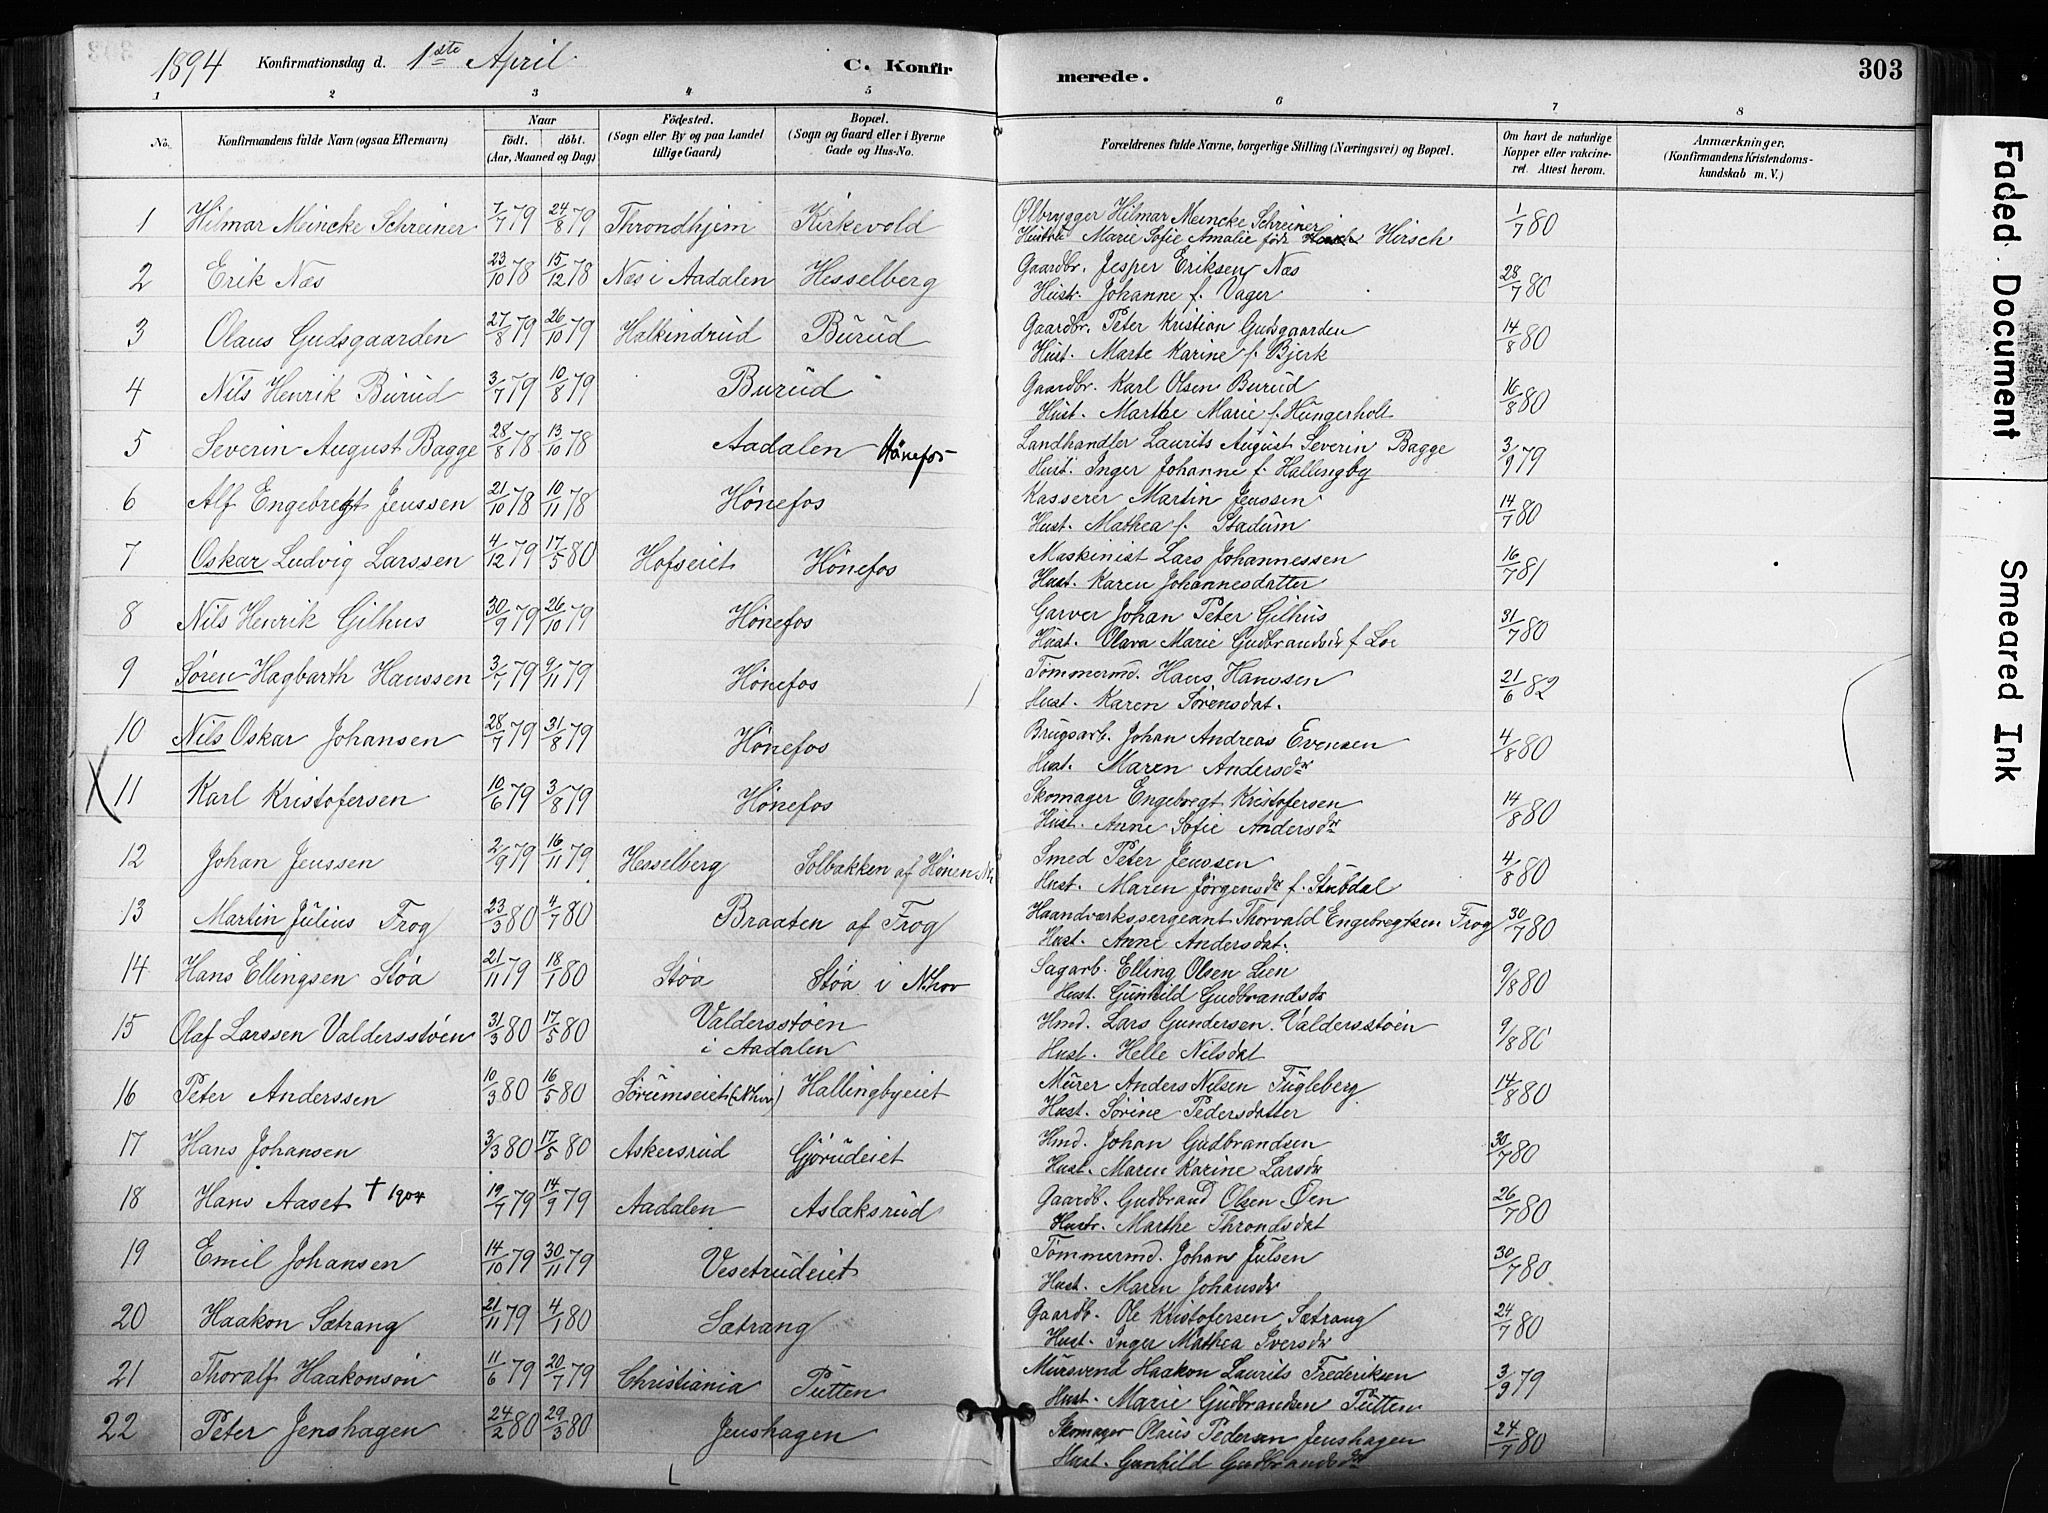 1894 Konfirmationsdag d. 1ste April. C. Konfirmerede. 303
1 2 3 4 5 6 7 8
No. Konfirmandens fulde Navn (ogsaa Efternavn) Naar født. døbt. (Aar, Maaned og Dag) Fødested. (Sogn eller By og paa Landet tillige Gaard) Bopæl. (Sogn og Gaard eller i Byerne Gade og Hus-No. Forældrenes fulde Navne, borgerlige Stilling (Næringsvei) og Bopæl. Om havt de naturlige Kopper eller vakcineret. Attest herom. Anmærkninger. (Konfirmandens Kristendomskundskab m. V.)
1 Hilmar Meincke Schreiner 7/7 79 24/8 79 Throndhjem Kirkevold Ølbrygger Hilmar Meincke Schreiner 1/7 80
Hustru Marie Sofie Amalie født Hirsch
2 Erik Næs 23/10 78 15/12 78 Næs i Aadalen Hesselberg Gaardbr. Jesper Eriksen Næs 28/7 80
Hustr. Johanne f. Vager
3 Olaus Gudsgaarden 27/8 79 26/10 79 Halkindrud Burud Gaardbr. Peter Kristian Gudsgaarden 14/8 80
Hust. Marte Karine f. Bjerk
4 Nils Henrik Burud 3/7 79 10/8 79 Burud Gaardbr. Karl Olsen Burud 16/8 80
Hust. Marthe Marie f. Hungerholt
5 Severin August Bagge 28/8 78 13/10 78 Aadalen Hönefos Landhandler Laurits August Severin Bagge 3/9 79
Hust. Inger Johanne f. Hallingby
6 Alf Engebregt Jenssen 21/10 78 10/11 78 Hønefos Kasserer Martin Jenssen 14/7 80
Hust. Mathea f. Stadum
7 Oskar Ludvig Larssen 4/12 79 17/5 80 Hofseiet Hønefos Maskinist Lars Johannessen 16/7 81
Hust. Karen Johannesdatter
8 Nils Henrik Gilhus 30/9 79 26/10 79 Hønefos Garver Johan Peter Gilhus 31/7 80
Hust. Olava Marie Gudbrandsdr f. Loe
9 Søren Hagbarth Hanssen 3/7 79 9/11 79 Hønefos Tømmermd. Hans Hanssen 21/6 82
Hust. Karen Sørensdat.
10 Nils Oskar Johansen 28/7 79 31/8 79 Hønefos Brugsarb. Johan Andreas Evensen 4/8 80
Hust. Maren Andersdr
X 11 Karl Kristofersen 10/6 79 3/8 79 Hønefos Skomager Engebregt Kristofersen 14/8 80
Hust. Anne Sofie Andersdr
12 Johan Jenssen 2/9 79 16/11 79 Hesselberg Solbakken af Hønen Smed Peter Jenssen 4/8 80
Hust. Maren Jørgensdr f. Stubdal
13 Martin Julius Frog 23/3 80 4/7 80 Braaten af Frog Haandværkssergeant Thorvald Engebregtsen Frog 30/7 80
Hust. Anne Andersdat.
14 Hans Ellingsen Støa 21/11 79 18/1 80 Støa Støa i N.hov Sagarb. Elling Olsen Lien 9/8 80
Hust. Gunhild Gudbrandsdr
15 Olaf Larssen Valdersstøen 31/3 80 17/5 80 Valdersstøen Hmd. Lars Gundersen Valdersstøen 9/8 80
i Aadalen Hust. Helle Nilsdat
16 Peter Anderssen 10/3 80 16/5 80 Sørumseiet (N.hov) Hallingbyeiet Murer Anders Nilsen Fugleberg 14/8 80
Hust. Sørine Pedersdatter
17 Hans Johansen 3/3 80 17/5 80 Askersrud Gjørudeiet Hmd. Johan Gudbrandsen 30/7 80
Hust. Maren Karine Larsdr
18 Hans Aaset † 1904 19/7 79 14/9 79 Aadalen Aslaksrud Gaardb. Gudbrand Olsen Øen 26/7 80
Hustr. Marthe Throndsdat
19 Emil Johansen 14/10 79 30/11 79 Vesetrudeiet Tømmermd. Johan Julsen 30/7 80
Hust. Maren Johansdr
20 Haakon Sætrang 21/11 79 4/1 80 Sætrang Gaardb. Ole Kristofersen Sætrang 24/7 80
Hust. Inger Mathea Iversdr
21 Thoralf Haakonson 11/6 79 20/7 79 Christiania Putten Mursvend Haakon Laurits Frederiksen 3/9 79
Hust. Marie Gudbrandsen Putten
22 Peter Jenshagen 24/2 80 29/3 80 Jenshagen Skomager Olaus Pedersen Jenshagen 24/7 80
Hust. Gunhild Gudbrandsdr
Faded Document
Smeared Ink